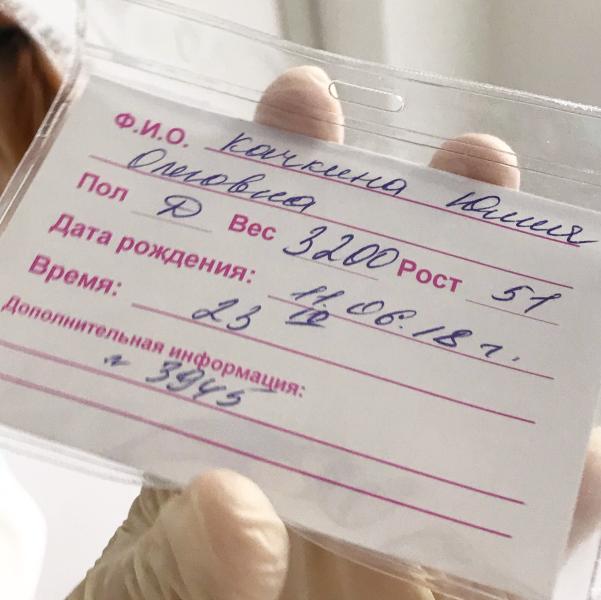 Ф.И.О. Качкина Юлия
Олеговна
Пол Д Вес 3200 Рост 51
Дата рождения: 11.06.18 г.
Время: 23 10
Дополнительная информация:
№ 3945